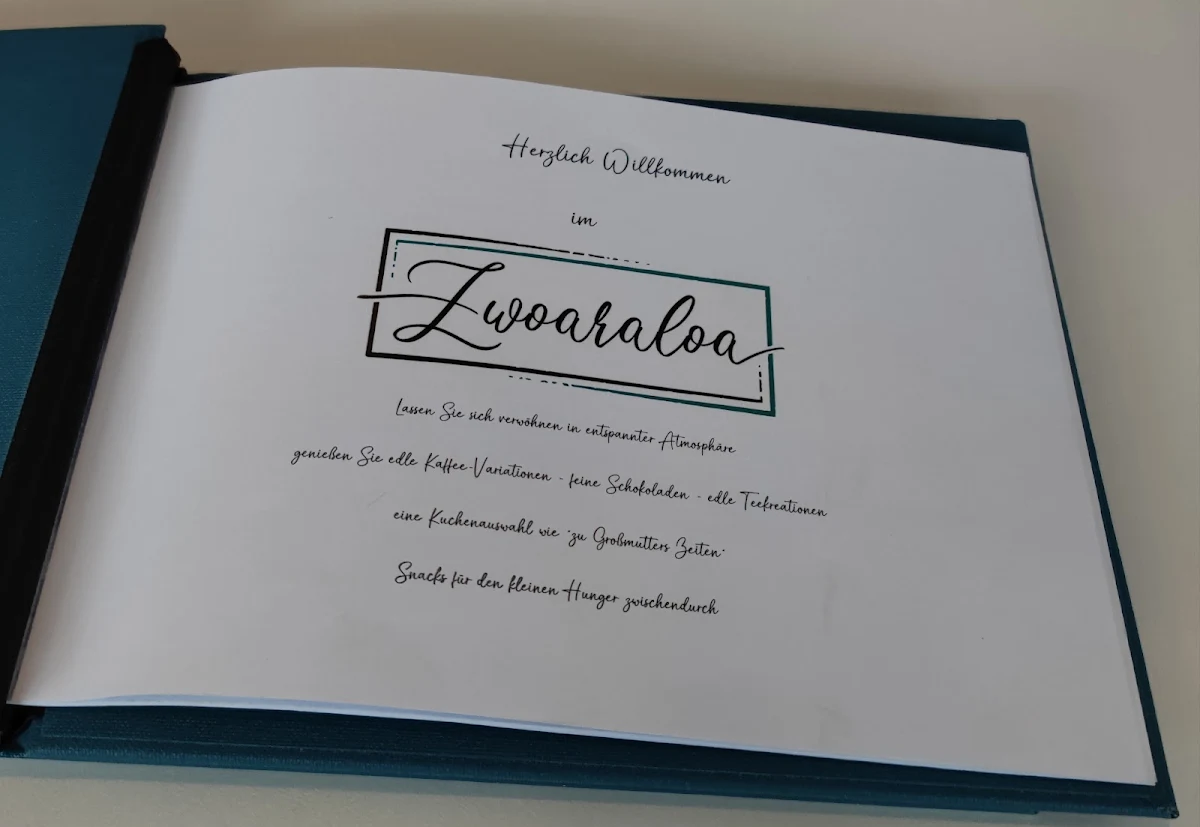 Herzlich Willkommen
im
Zwoaraloa
Lassen Sie sich verwöhnen in entspannter Atmosphäre
genießen Sie edle Kaffee-Variationen - feine Schokoladen - edle Teekreationen
eine Kuchenauswahl wie "zu Großmutters Zeiten"
Snacks für den kleinen Hunger zwischendurch